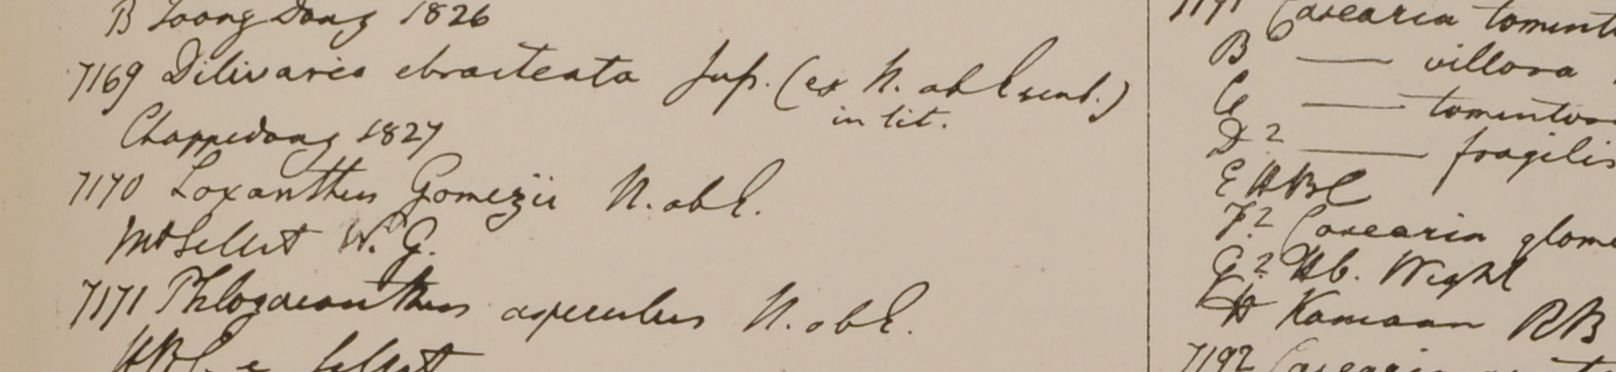 B Toong Dong 1826
7169 Dilivaria ebracteata Sup. (ex N. ab E. sent.)
in lit.
Chappedong 1827
7170 Loxanthus Gomezii N. ab E.
Mt Sillet W. G.
7171 Phlogacanthus asperulus N. ab E.
HBC e Sillet
7191 Casearia toment
B — villosa
C — tomentosa
D? — fragilis
E HBC
F? Casearia glome
G? Hb. Wight
H Kamaon RB
7192 Casearia